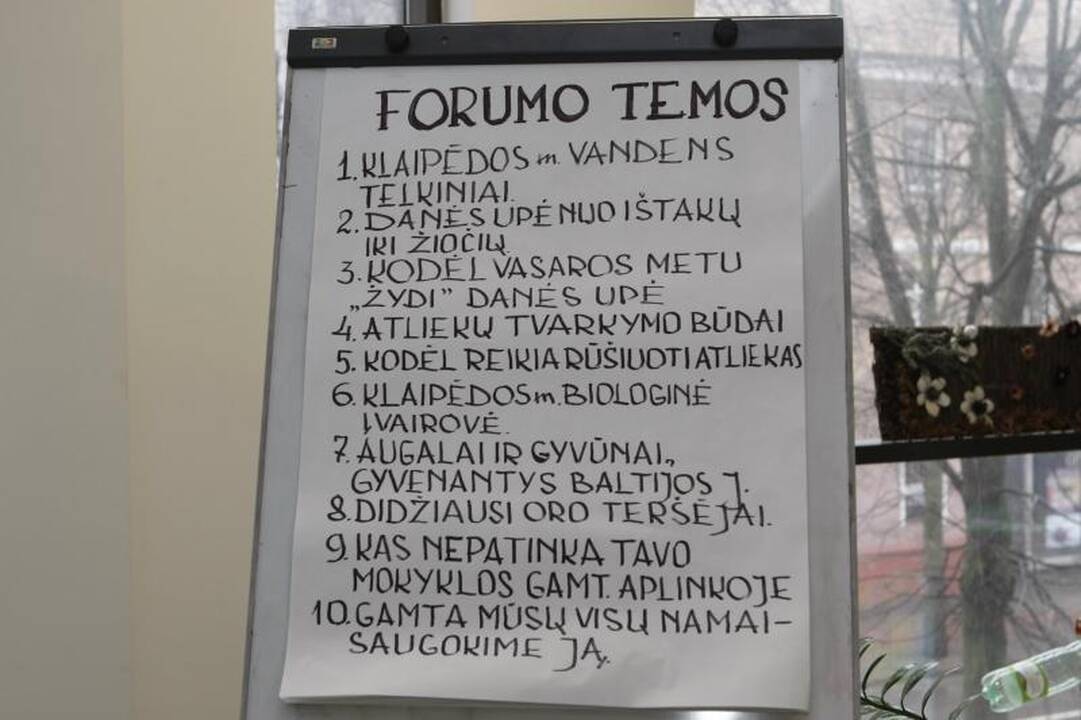 FORUMO TEMOS
1. KLAIPĖDOS m. VANDENS
TELKINIAI.
2. DANĖS UPĖ NUO IŠTAKŲ
IKI ŽIOČIŲ
3. KODĖL VASAROS METU
„ŽYDI” DANĖS UPĖ
4. ATLIEKŲ TVARKYMO BŪDAI
5. KODĖL REIKIA RŪŠIUOTI ATLIEKAS
6. KLAIPĖDOS m. BIOLOGINĖ
ĮVAIROVĖ.
7. AUGALAI IR GYVŪNAI,
GYVENANTYS BALTIJOS J.
8. DIDŽIAUSI ORO TERŠĖJAI.
9. KAS NEPATINKA TAVO
MOKYKLOS GAMT. APLINKOJE
10. GAMTA MŪSŲ VISŲ NAMAI-
SAUGOKIME JĄ.